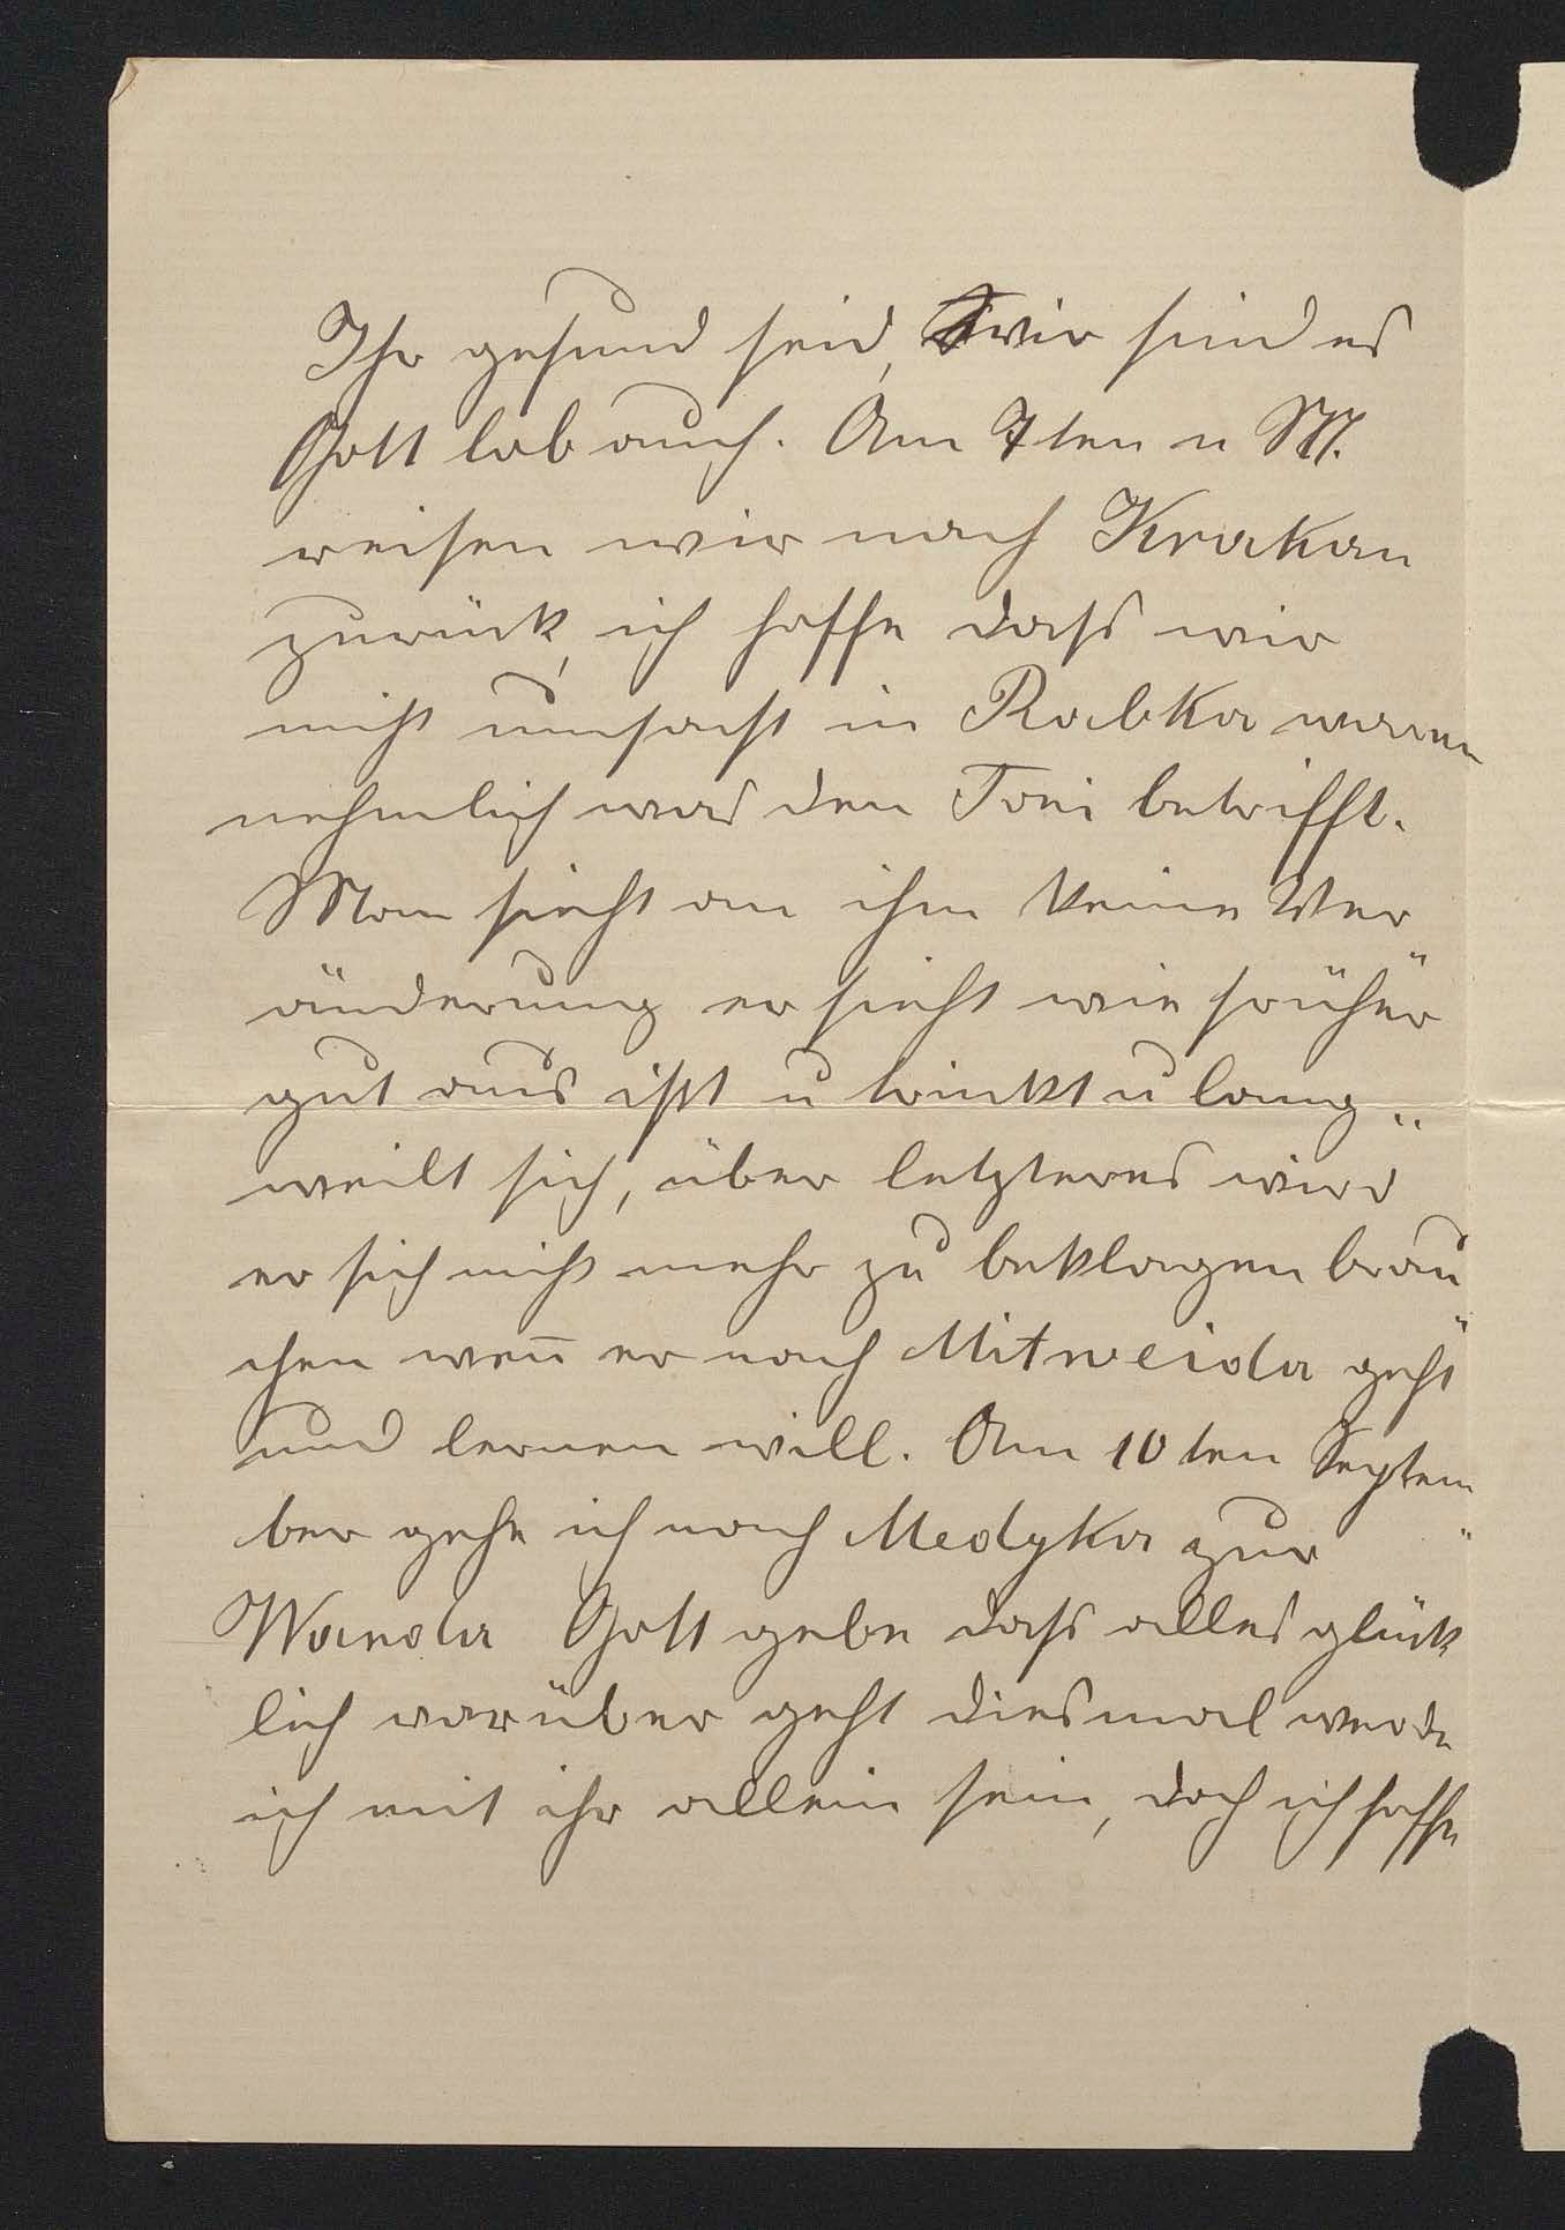 Ihr gesund seid, wir sind es
Gott lob auch. Am 7ten n M.
reisen wir nach Krakau
zurück, ich hoffe dass wir
nicht umsonst in Rabka waren
nehmlich was den Toni betrifft.
Man sieht an ihm keine Ver„
änderung er sieht wie früher
gut aus isst u trinkt u lang„
weilt sich, über letzteres wird
er sich nicht mehr zu beklagen brau„
chen weñ er nach Mitweida geht
und lernen will. Am 10ten Septem„
ber gehe ich nach Medyka zur
Wanda Gott gebe dass alles glück
lich vorüber geht diesmal werde
ich mit ihr allein sein, doch ich hoffe